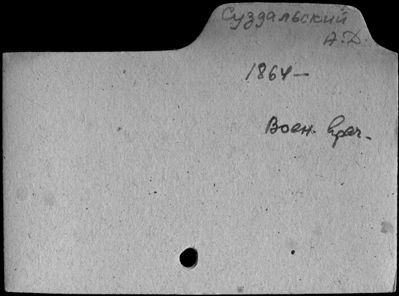 Суздальский
А.Д.
1864-
Воен. врач.